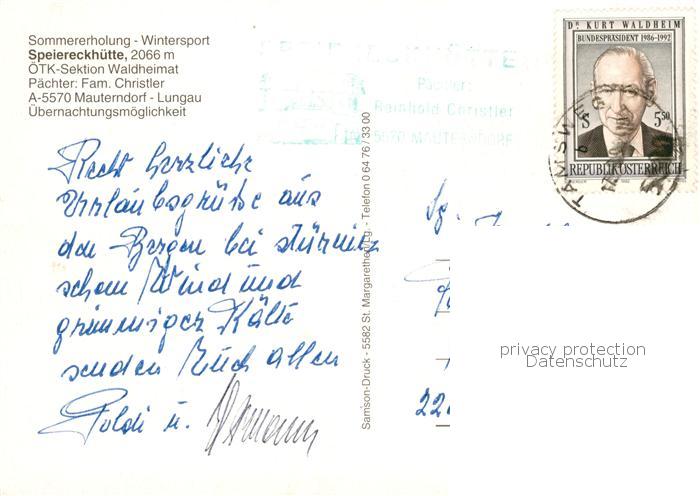 Sommererholung - Wintersport
Speiereckhütte, 2066 m
ÖTK-Sektion Waldheimat
Pächter: Fam. Christler
A-5570 Mauterndorf - Lungau
Übernachtungsmöglichkeit
SPEIERECKHÜTTE
Pächter:
Reinhold Christler
5570 MAUTERNDORF
DR. KURT WALDHEIM
BUNDESPRÄSIDENT 1986-1992
S 5.50
REPUBLIK ÖSTERREICH
TAMSWEG
Recht herzliche
Urlaubsgrüße aus
den Bergen bei stürmi
schem Wind und
grimmiger Kälte
senden Euch allen
Poldi u. Hermann
Samson-Druck - 5582 St. Margarethen/Lg. - Telefon 0 64 76 / 33 00
privacy protection
Datenschutz